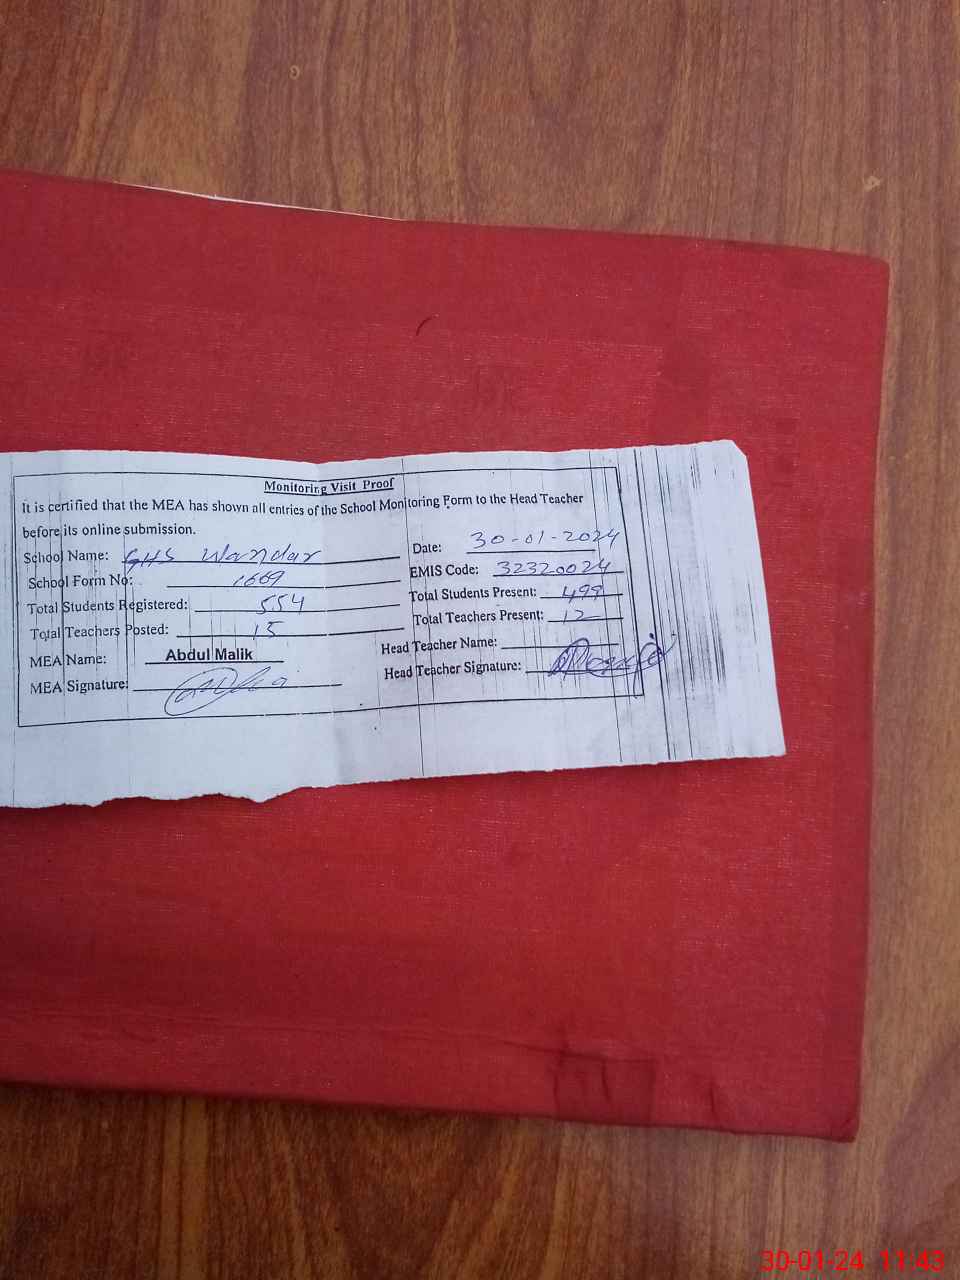 Monitoring Visit Proof
It is certified that the MEA has shown all entries of the School Monitoring Form to the Head Teacher
before its online submission.
School Name: GHS Wandar Date: 30-01-2024
School Form No: 1669 EMIS Code: 32320024
Total Students Registered: 554 Total Students Present: 499
Total Teachers Posted: 15 Total Teachers Present: 12
MEA Name: Abdul Malik Head Teacher Name:
MEA Signature: Head Teacher Signature:
30-01-24 11:43